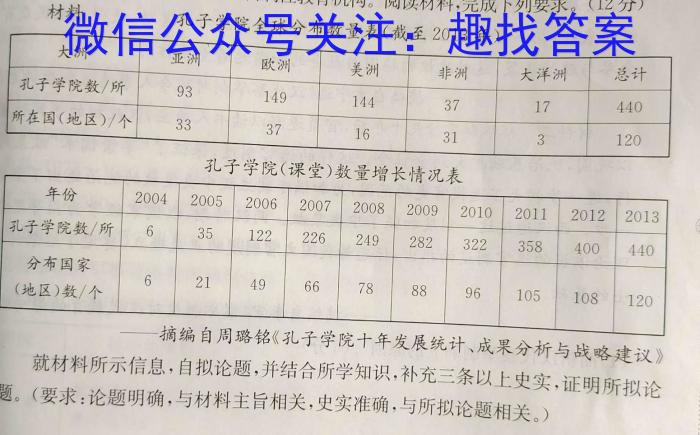 阅读材料,完成下列要求。(12分)
材料
微信公众号关注：趣找答案
孔子学院全球分布数量表(截至2013年)
大洲 亚洲 欧洲 美洲 非洲 大洋洲 总计
孔子学院数/所 93 149 144 37 17 440
所在国(地区)/个 33 37 16 31 3 120
孔子学院(课堂)数量增长情况表
年份 2004 2005 2006 2007 2008 2009 2010 2011 2012 2013
孔子学院数/所 6 35 122 226 249 282 322 358 400 440
分布国家
(地区)数/个 6 21 49 66 78 88 96 105 108 120
——摘编自周璐铭《孔子学院十年发展统计、成果分析与战略建议》
就材料所示信息,自拟论题,并结合所学知识,补充三条以上史实,证明所拟论
题。(要求:论题明确,与材料主旨相关,史实准确,与所拟论题相关。)